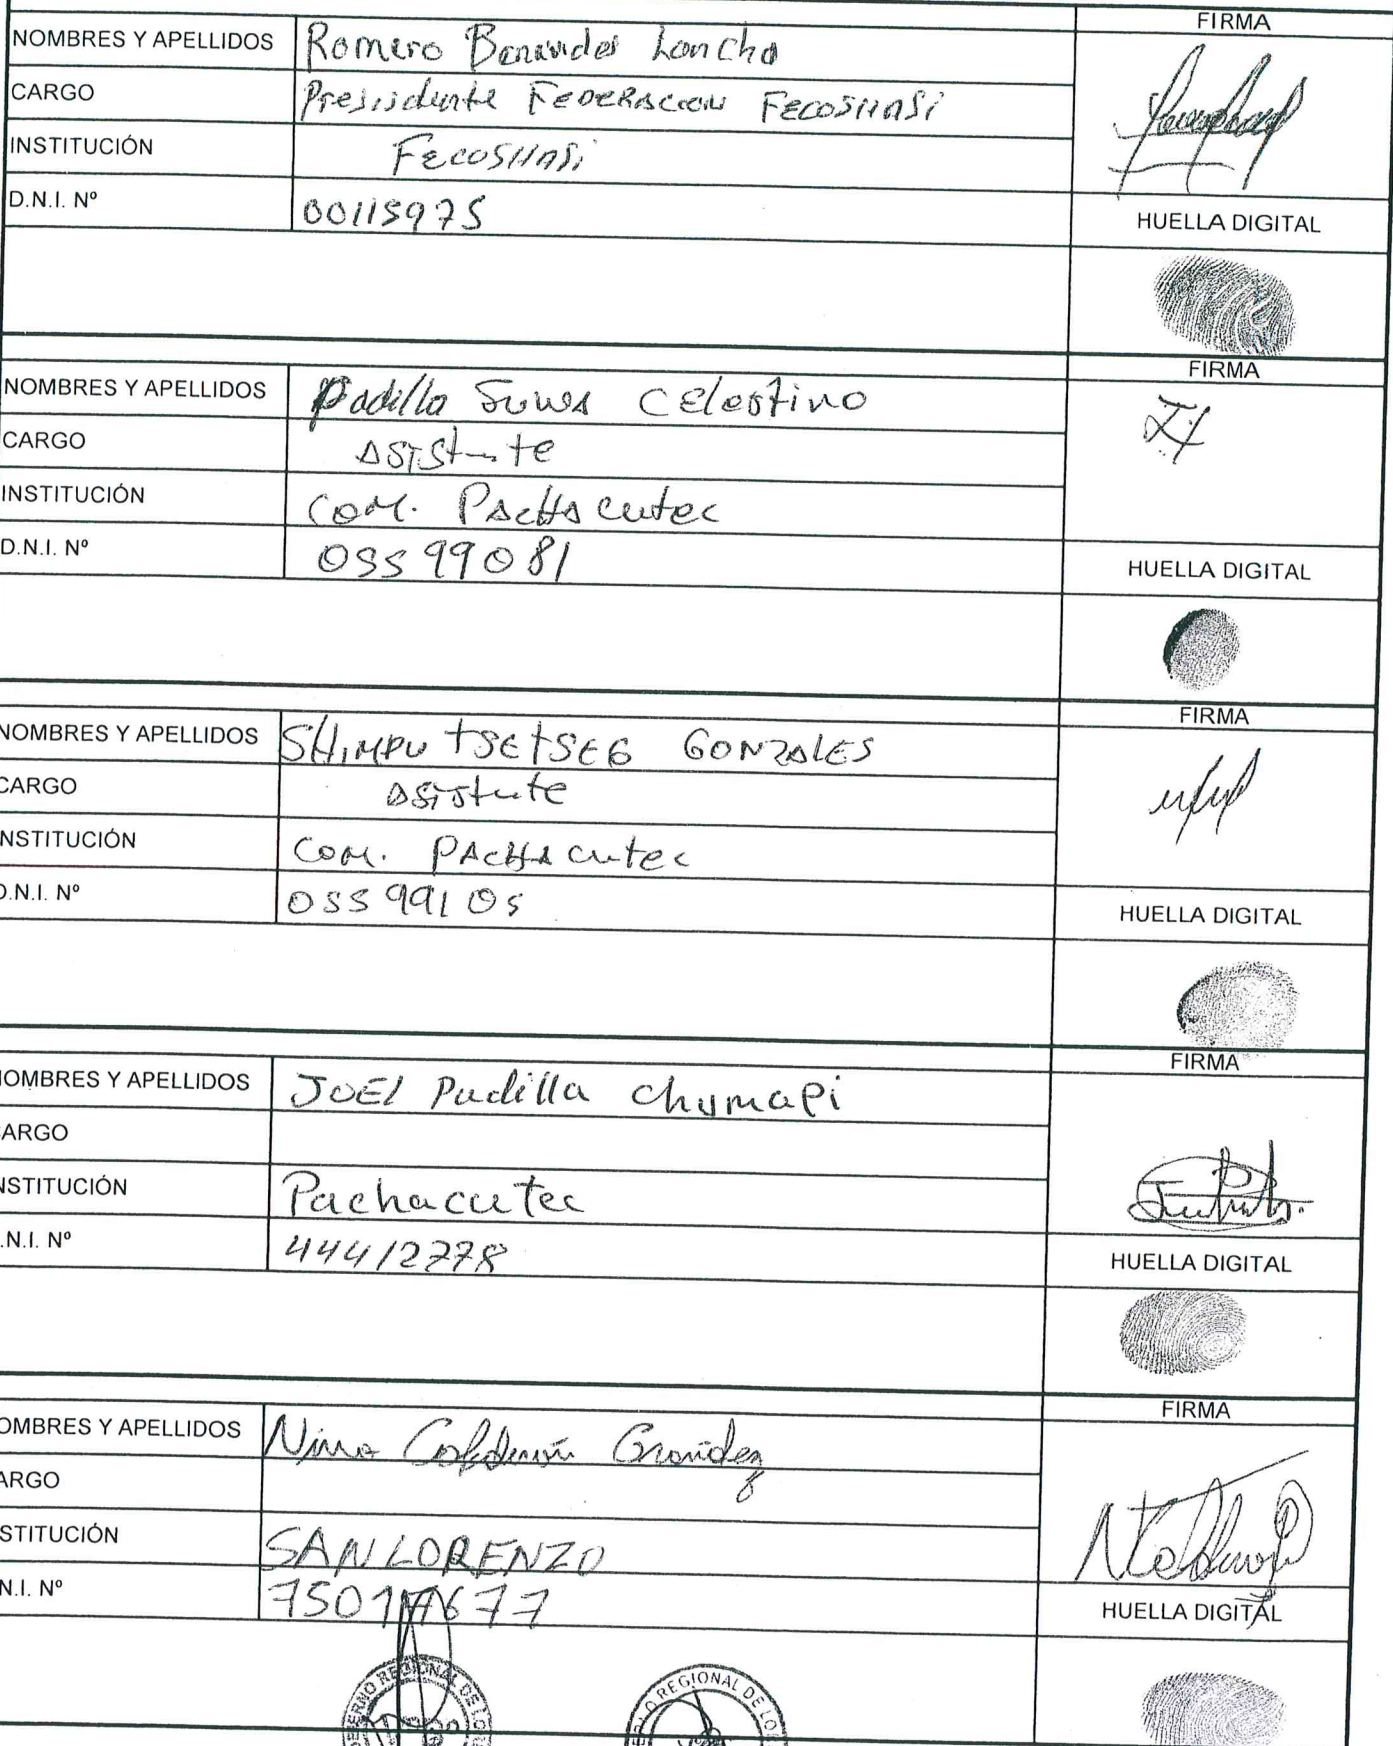 FIRMA
NOMBRES Y APELLIDOS Romero Benavides Loncha
CARGO Pressidente FEDERACION FECOSHASI
INSTITUCIÓN FECOSHASI
D.N.I. Nº 00115975
HUELLA DIGITAL
FIRMA
NOMBRES Y APELLIDOS Padilla Celestino
CARGO
INSTITUCIÓN COM. PACHACUTEC
D.N.I. Nº 05599081
HUELLA DIGITAL
FIRMA
NOMBRES Y APELLIDOS SHIMPU TSETSEG GONZALES
CARGO
INSTITUCIÓN COM. PACHACUTEC
D.N.I. Nº 05599105
HUELLA DIGITAL
FIRMA
NOMBRES Y APELLIDOS JOEL Padilla Chumapi
CARGO
INSTITUCIÓN Pachacutec
D.N.I. Nº 44412778
HUELLA DIGITAL
FIRMA
OMBRES Y APELLIDOS Nima Calderón Grandez
ARGO
STITUCIÓN SAN LORENZO
N.I. Nº
HUELLA DIGITAL
ERNO REGIONAL DE LO
REGIONAL DE LO